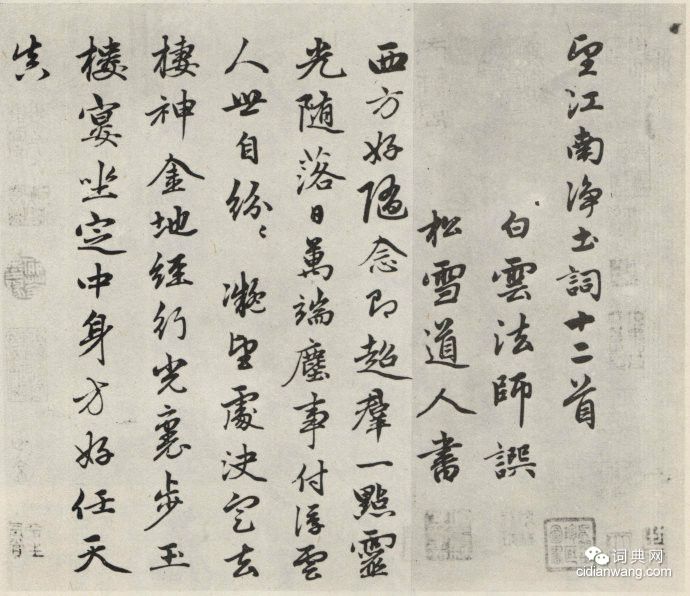 望江南净土詞十二首
白雲法師譔
松雪道人書
西方好隨念即超羣一點靈
光随落日萬端塵事付浮雲
人世自紛〻 凝望處决定去
棲神金地經行光裏步玉
樓宴坐定中身方好任天
真
词典网
cidianwang.com